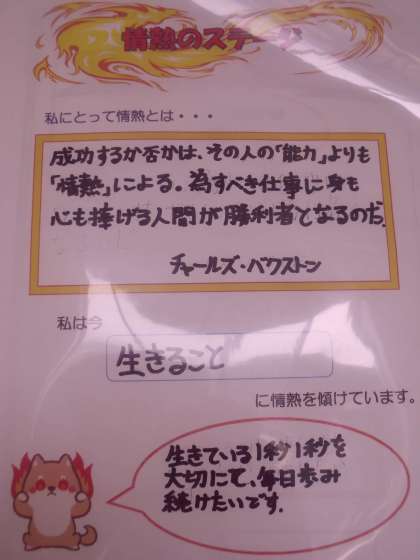 情熱のステージ
私にとって情熱とは・・・
成功するか否かは、その人の「能力」よりも
「情熱」による。為すべき仕事に身も
心も捧げる人間が勝利者となるのだ。
チャールズ・バクストン
私は今
生きること
に情熱を傾けています。
生きている1秒1秒を
大切にて、毎日歩み
続けたいです。